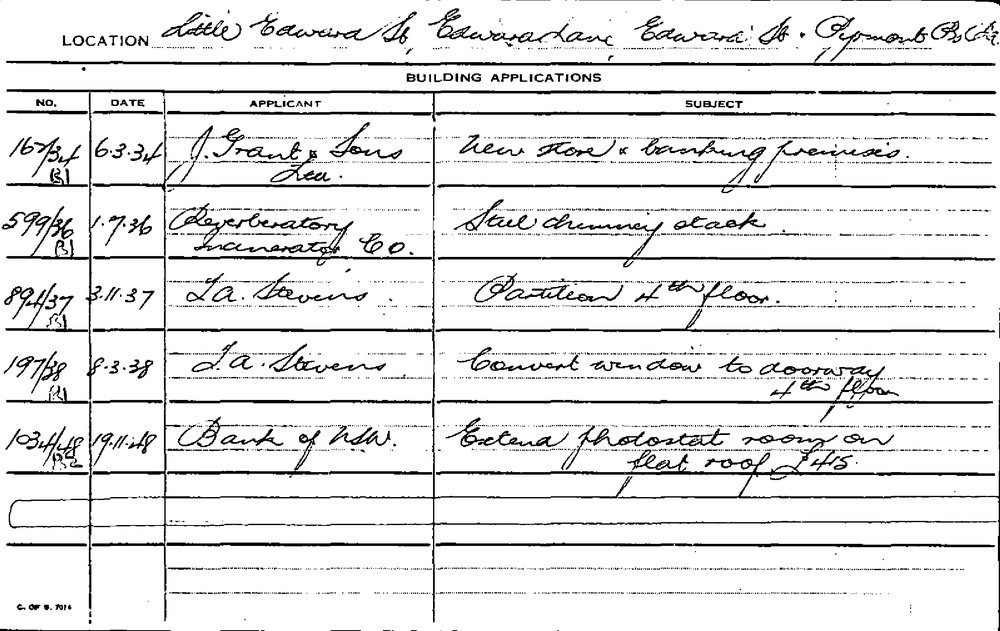 LOCATION Little Edward St, Edward Lane, Edward St. Pyrmont
BUILDING APPLICATIONS
NO. DATE APPLICANT SUBJECT
6.3.34 J. Grant & Sons New store & banking premises.
B1 Ltd.
599/36 1.7.36 Reverberatory Steel chimney stack
B1 Incinerator Co.
894/37 3.11.37 T.A. Stevens Partition 4th floor.
B1
197/38 8.3.38 T.A. Stevens Convert window to doorway
B1 4th floor
1034/48 19.11.48 Bank of NSW. Extend photostat room on
B2 flat roof £415.
C. OF S. 7016